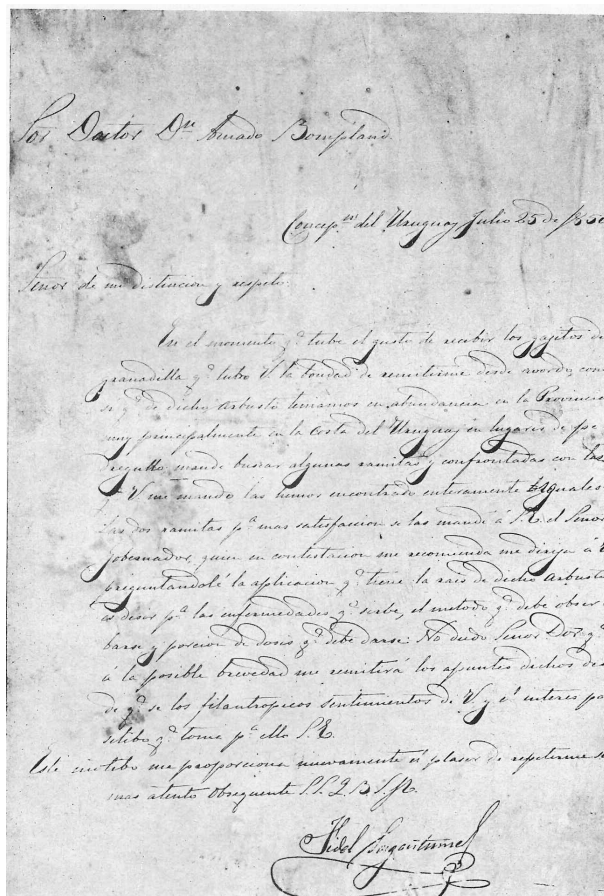 Sor Doctor Dn Amado Bompland.
Concepn del Uruguay Julio 25 de 185
Señor de mi distincion y respeto.
En el momento qe tube el gusto de recibir los gajitos de
granadilla qe tubo V. la bondad de remitirme desde abordo, cono
si qe de dicho Arbusto teniamos en abundancia en la Provincia
muy principalmente en la Costa del Uruguay en lugares de
mandé buscar algunas ramitas y confrontadas con las
qe V me mandó las hemos encontrado enteramente Iguales.
Las dos ramitas pa mas satisfaccion se las mandé á S.E. el Señor
Gobernador, quien en contestacion me recomienda me dirija á
preguntandole la aplicacion qe tiene la rais de dicho Arbusto
es desir pa las enfermedades qe sirbe, el metodo qe debe obser
barse y porcion de dosis qe debe darse. No dudo Señor Dor qe
á la posible brevedad me remitirá los apuntes dichos des
de qe se los filantropicos sentimientos de V. y el interes po
sitibo qe toma pa ello S.E.
Este motibo me proporciona nuevamente el plaser de repetirme su
mas atento Obsequente S.S.Q.B.S.M.
Fidel Sagastume